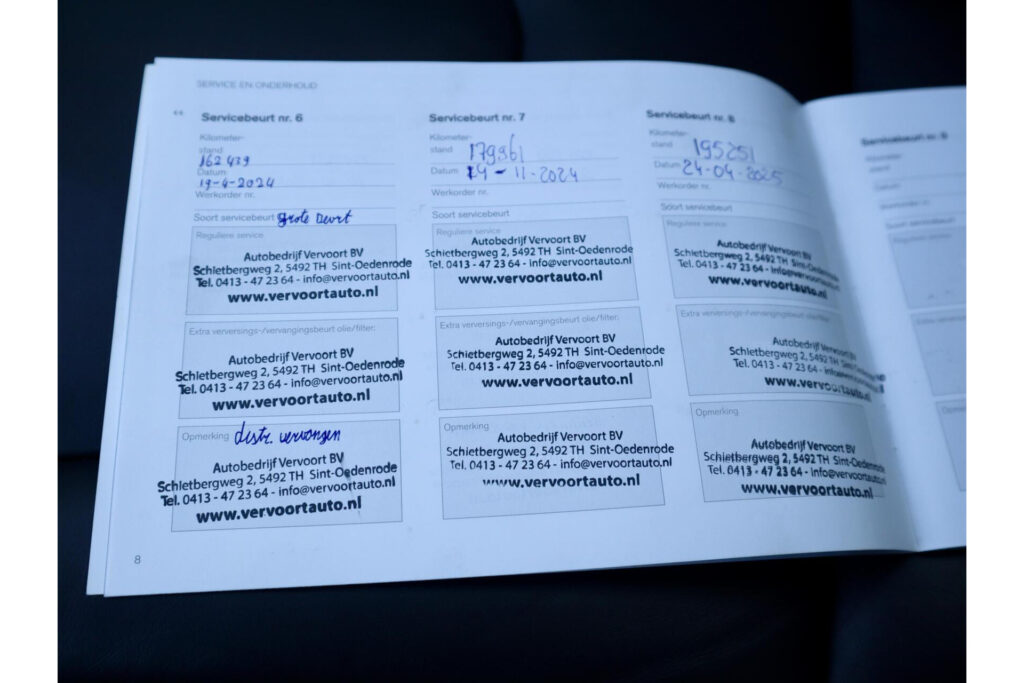 SERVICE EN ONDERHOUD
Servicebeurt nr. 6
Kilometer-
stand
162 439
Datum
19-4-2024
Werkorder nr.
Soort servicebeurt grote beurt
Reguliere service
Autobedrijf Vervoort BV
Schietbergweg 2, 5492 TH Sint-Oedenrode
Tel. 0413 - 47 23 64 - info@vervoortauto.nl
www.vervoortauto.nl
Extra verversings-/vervangingsbeurt olie/filter:
Autobedrijf Vervoort BV
Schietbergweg 2, 5492 TH Sint-Oedenrode
Tel. 0413 - 47 23 64 - info@vervoortauto.nl
www.vervoortauto.nl
Opmerking distr. vervangen
Autobedrijf Vervoort BV
Schietbergweg 2, 5492 TH Sint-Oedenrode
Tel. 0413 - 47 23 64 - info@vervoortauto.nl
www.vervoortauto.nl
8
Servicebeurt nr. 7
Kilometer-
stand 179861
Datum - 11-2024
Werkorder nr.
Soort servicebeurt
Reguliere service
Autobedrijf Vervoort BV
Schietbergweg 2, 5492 TH Sint-Oedenrode
Tel. 0413 - 47 23 64 - info@vervoortauto.nl
www.vervoortauto.nl
Extra verversings-/vervangingsbeurt olie/filter:
Autobedrijf Vervoort BV
Schietbergweg 2, 5492 TH Sint-Oedenrode
Tel. 0413 - 47 23 64 - info@vervoortauto.nl
www.vervoortauto.nl
Opmerking
Autobedrijf Vervoort BV
Schietbergweg 2, 5492 TH Sint-Oedenrode
Tel. 0413 - 47 23 64 - info@vervoortauto.nl
www.vervoortauto.nl
Servicebeurt nr. 8
Kilometer-
stand 195251
Datum 24-04-2025
Werkorder nr.
Soort servicebeurt
Reguliere service
Autobedrijf Vervoort BV
Schietbergweg 2, 5492 TH Sint-Oedenrode
Tel. 0413 - 47 23 64 - info@vervoortauto.nl
www.vervoortauto.nl
Extra verversings-/vervangingsbeurt olie/filter:
Autobedrijf Vervoort BV
Schietbergweg 2, 5492 TH Sint-Oedenrode
Tel. 0413 - 47 23 64 - info@vervoortauto.nl
www.vervoortauto.nl
Opmerking
Autobedrijf Vervoort BV
Schietbergweg 2, 5492 TH Sint-Oedenrode
Tel. 0413 - 47 23 64 - info@vervoortauto.nl
www.vervoortauto.nl
Servicebeurt nr. 9